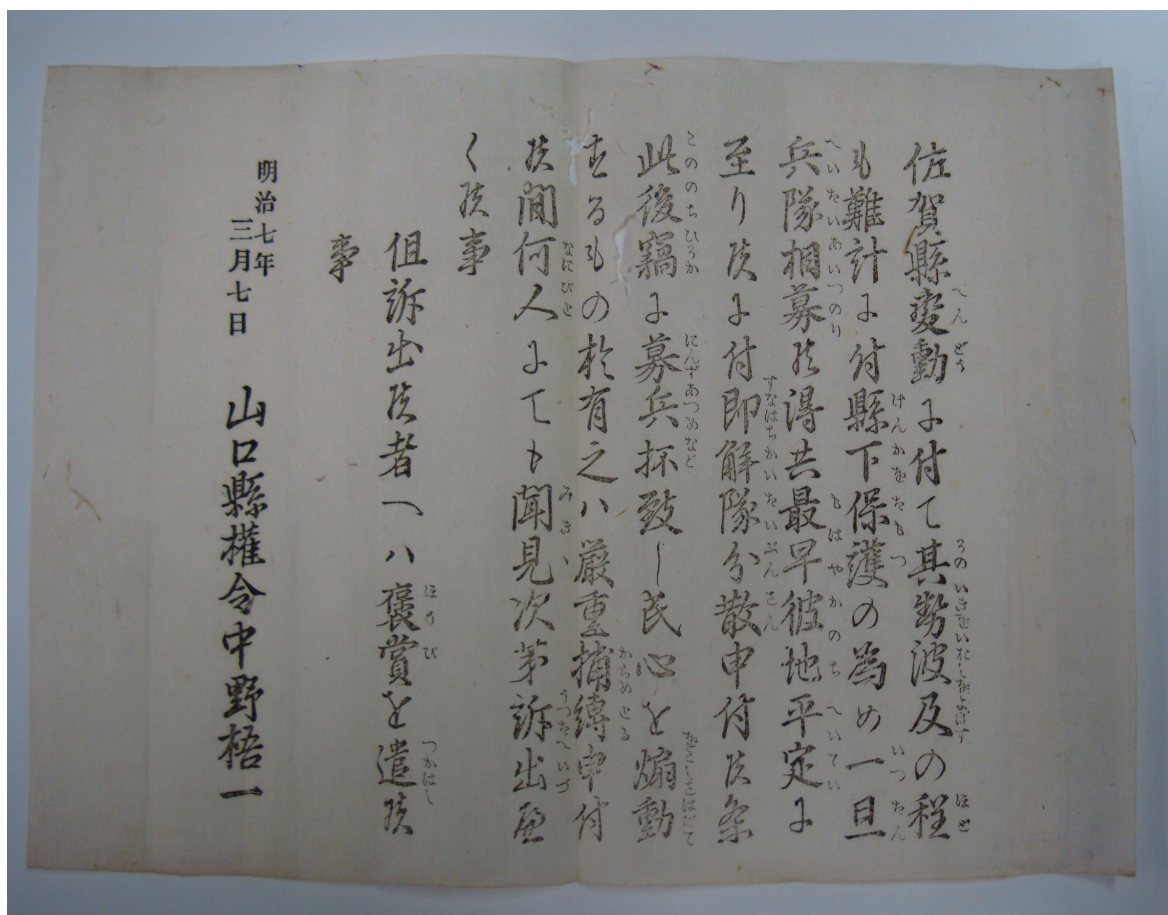 佐賀縣変動ニ付て其勢波及の程
も難計ニ付縣下保護の為め一旦
兵隊相募候得共最早彼地平定ニ
至り候ニ付即解隊分散申付候条
此後竊ニ募兵抔致し民心を煽動
するもの於有之ハ厳重捕縛申付
候間何人ニても聞見次第訴出べ
く候事
但訴出候者へハ褒賞を遣候
事
明治七年
三月七日 山口縣權令中野梧一